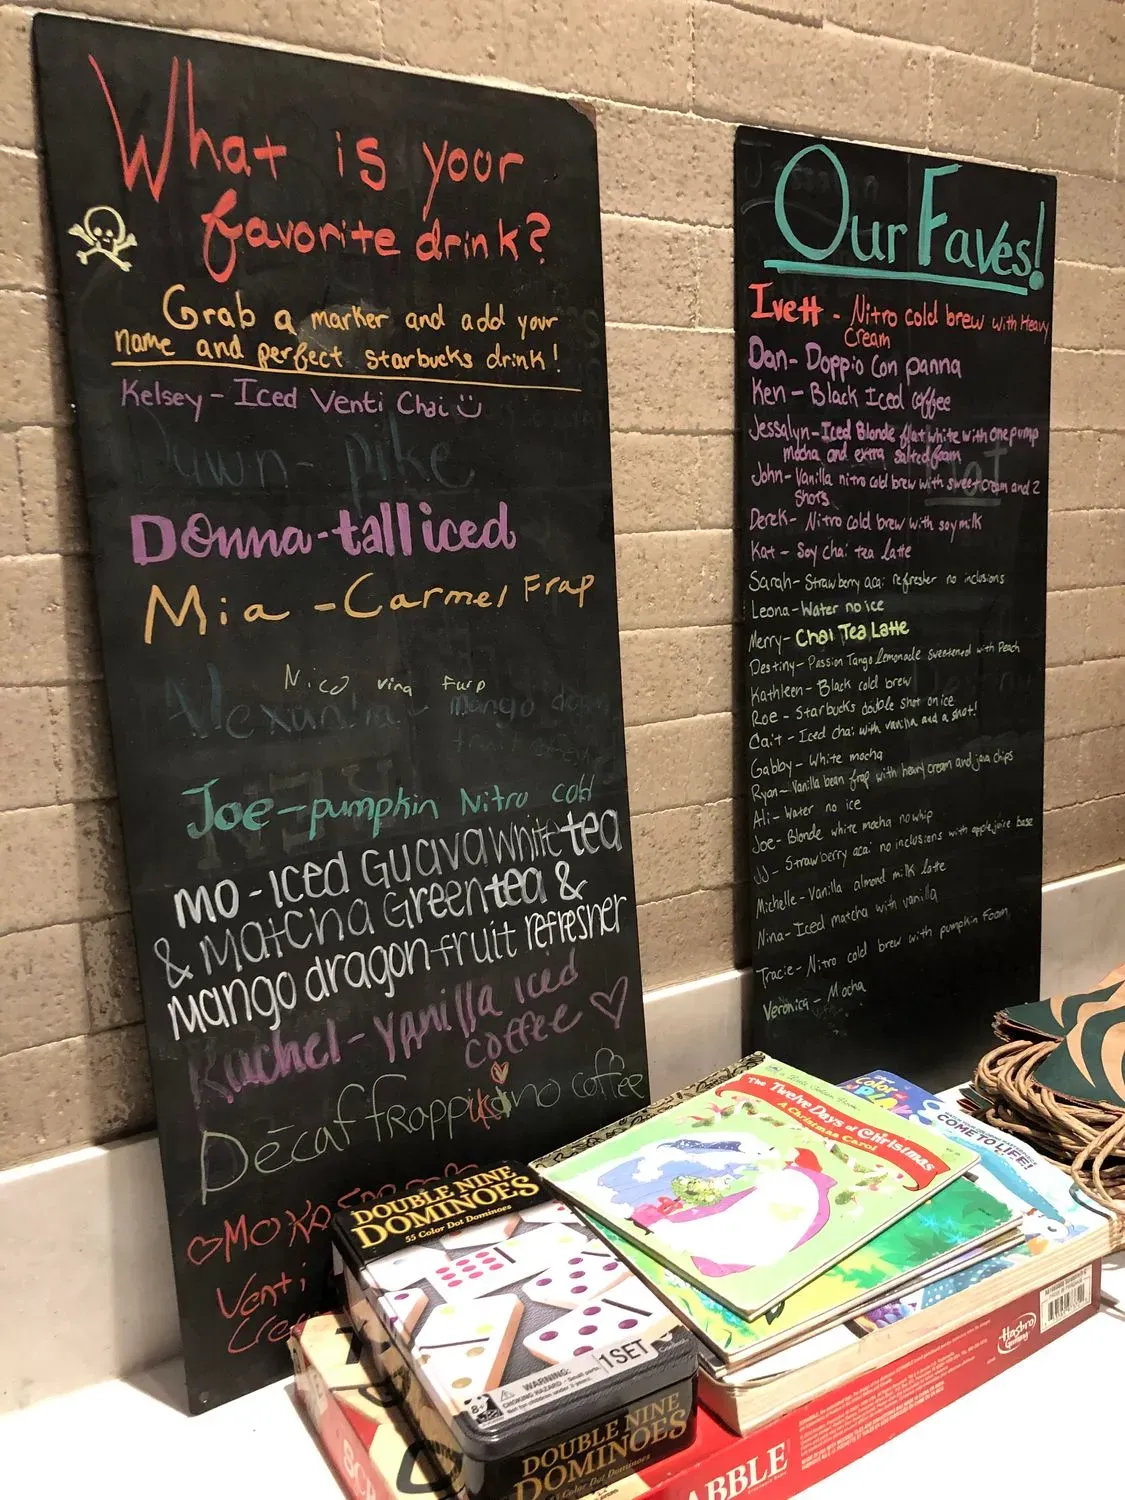 What is your
favorite drink?
Grab a marker and add your
name and perfect starbucks drink!
Kelsey - Iced Venti Chai
Dawn - pike
Donna - tall iced
Mia - Carmel Frap
Nico
Joe - pumpkin Nitro cold
Mo - Iced Guava white tea
& Matcha Green tea &
Mango dragon-fruit refresher
Rachel - Vanilla iced
coffee
Decaf frappuccino coffee
Moka
Venti
Our Faves!
Ivett - Nitro cold brew with Heavy
Cream
Dan - Doppio Con panna
Ken - Black Iced coffee
Jessalyn - Iced Blonde flat white with one pump
mocha and extra salted foam
John - Vanilla nitro cold brew with sweet cream and 2
shots
Derek - Nitro cold brew with soy milk
Kat - Soy chai tea latte
Sarah - Strawberry acai refresher no inclusions
Leona - Water no ice
Merry - Chai Tea Latte
Destiny - Passion Tango lemonade sweetened with Peach
Kathleen - Black cold brew
Roe - Starbucks double shot on ice
Cait - Iced chai with vanilla and a shot!
Gabby - White mocha
Ryan - Vanilla bean frap with heavy cream and java chips
Ali - Water no ice
Joe - Blonde white mocha no whip
JJ - Strawberry acai no inclusions with apple juice base
Michelle - Vanilla almond milk latte
Nina - Iced matcha with vanilla
Tracie - Nitro cold brew with pumpkin Foam
Veronica - Mocha
a Little Golden Book
The Twelve Days of Christmas
A Christmas Carol
Color
PLAY
COME TO LIFE!
DOUBLE NINE
DOMINOES
55 Color Dot Dominoes
WARNING:
CHOKING HAZARD - Small parts
1 SET
8+
DOUBLE NINE
DOMINOES
55 Color Dot Dominoes
Hasbro
Gaming
SCR
ABBLE